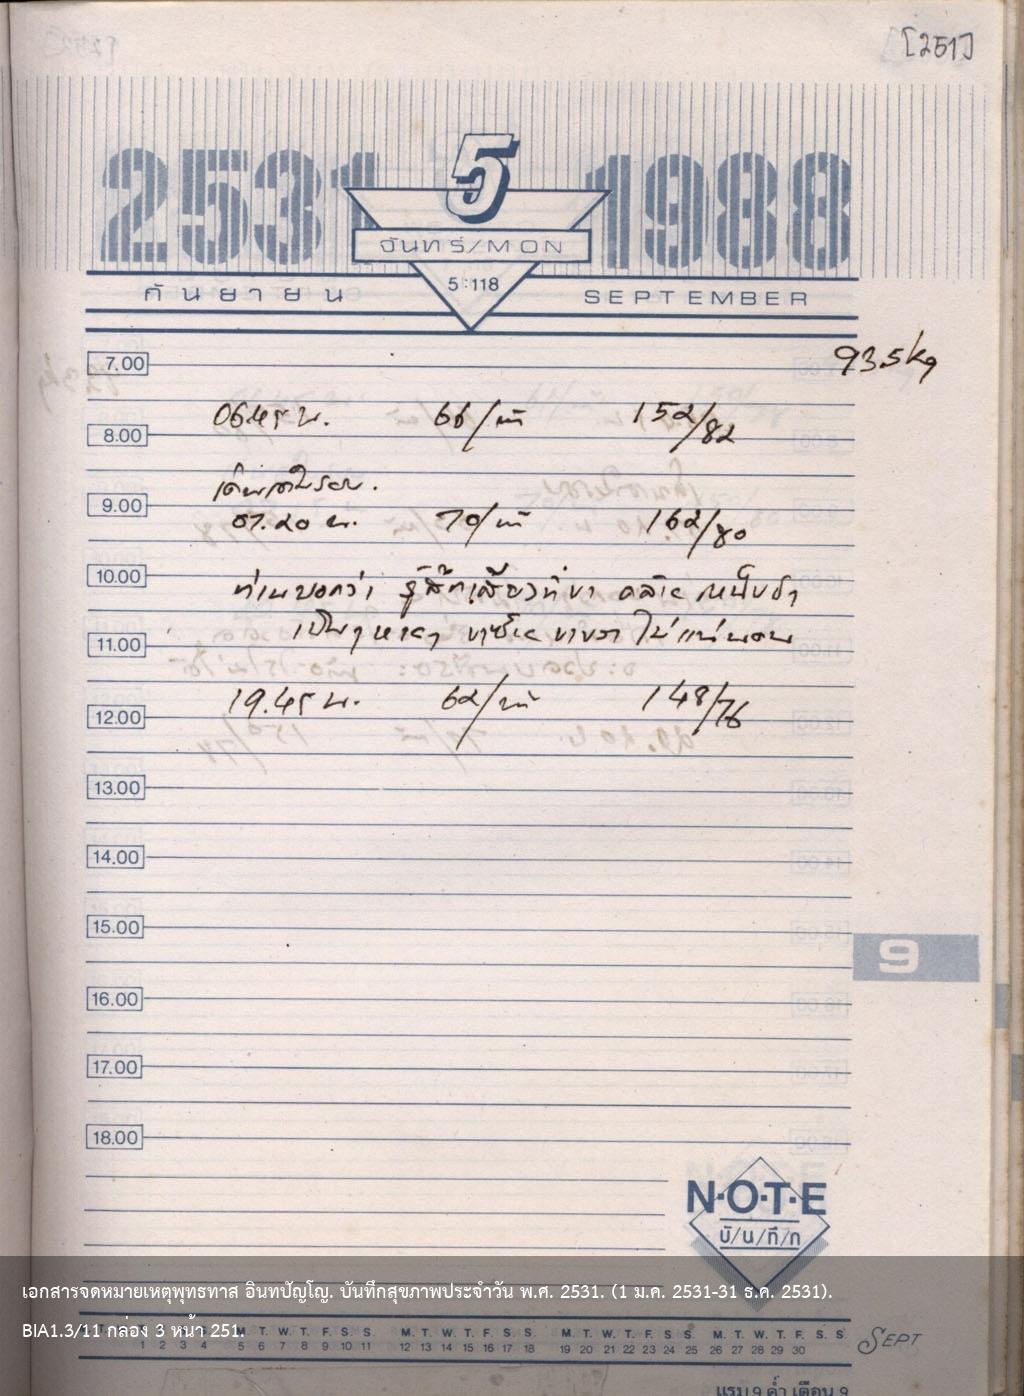 [251]
2531 5 1988
จันทร์/MON
5:118
กันยายน SEPTEMBER
7.00 93.5 kg
06.45 น. 66/นาที 152/82
8.00
เดินสายในรอบ.
9.00
07.20 น. 70/นาที 162/80
10.00
ท่านบอกว่า รู้สึกเสียวที่ขา คล้าย เหน็บชา
เป็นๆ หายๆ ขาซ้าย ขาขวา ไม่แน่นอน
11.00
19.45 น. 62/นาที 148/76
12.00
13.00
14.00
15.00
9
16.00
17.00
18.00
N·O·T·E
บั/น/ทึ/ก
เอกสารจดหมายเหตุพุทธทาส อินทปัญโญ. บันทึกสุขภาพประจำวัน พ.ศ. 2531. (1 ม.ค. 2531-31 ธ.ค. 2531).
BIA1.3/11 กล่อง 3 หน้า 251.
M. T. W. T. F. S. S. M. T. W. T. F. S. S. M. T. W. T. F. S. S. M. T. W. T. F. S. S. SEPT
1 2 3 4 5 6 7 8 9 10 11 12 13 14 15 16 17 18 19 20 21 22 23 24 25 26 27 28 29 30
แรม 9 ค่ำ เดือน 9